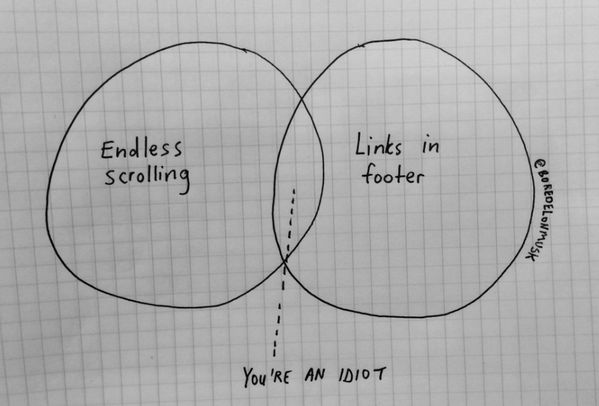 Endless
scrolling
Links in
footer
@BOREDELONMUSK
YOU'RE AN IDIOT